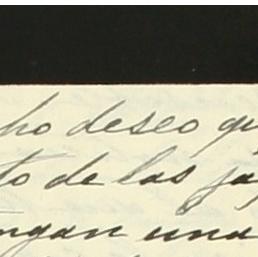 ho deseo qu
to de las ja
ngan una